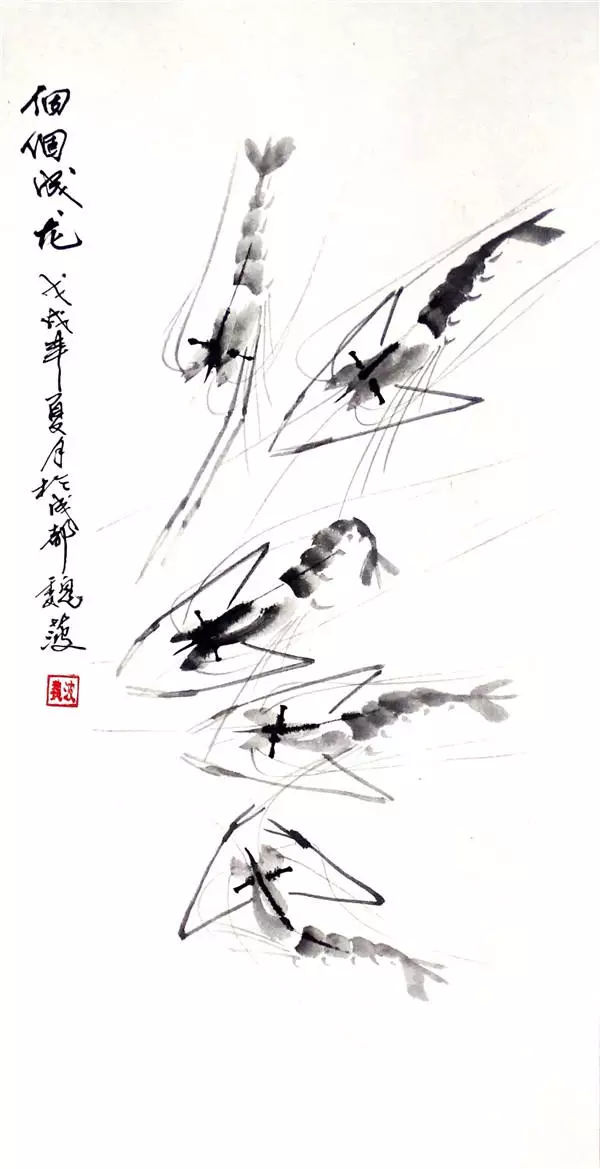 個個成龙 戊戌年夏月於成都魏菠